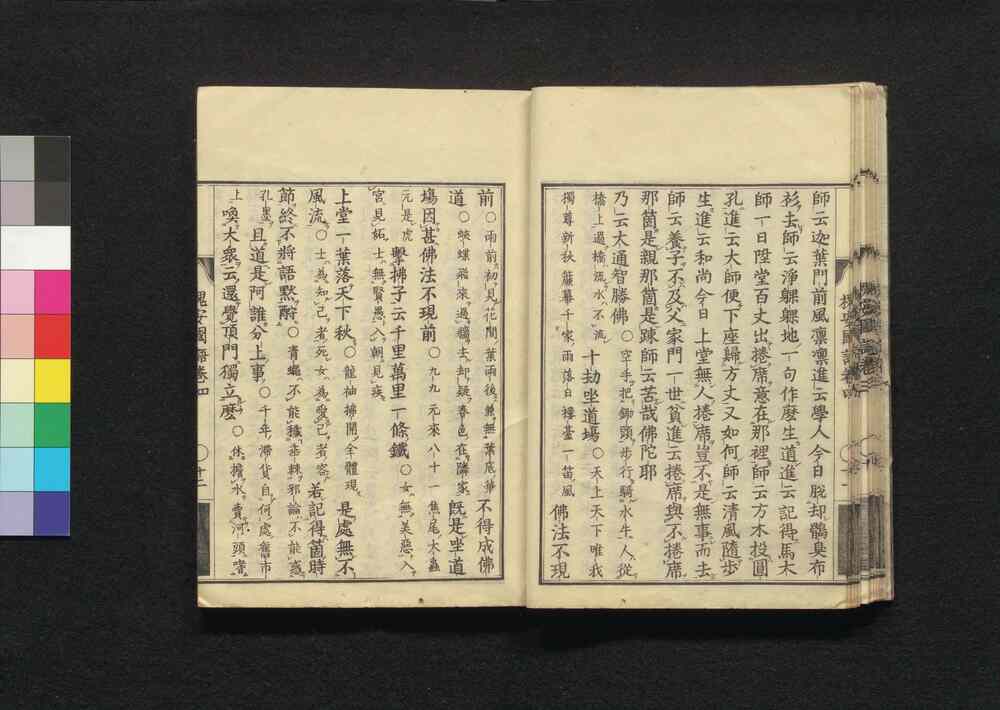 師云迦葉門前風凛凛進云學人今日脱却鶻臭布
衫去師云淨躶躶地一句作麼生道進云記得馬大
師一日陞堂百丈出捲席意在那裡師云方木投圓
孔進云大師便下座歸方丈又如何師云清風隨步
生進云和尚今日上堂無人捲席豈不是無事而去
師云養子不及父家門一世貧進云捲席與不捲席
那箇是親那箇是疎師云苦哉佛陀耶
乃云大通智勝佛○空手把鋤頭步行騎水牛人從
橋上過橋流水不流十劫坐道塲○天上天下唯我
獨尊新秋簾幕千家雨落日樓臺一笛風佛法不現
前○雨前初見花間葉雨後兼無葉底華不得成佛
道○蛺蝶飛來過牆去却疑春色在隣家既是坐道
塲因甚佛法不現前○九九元來八十一焦尾大蟲
元是虎擊拂子云千里萬里一條鐵○女無美惡入
宮見妬士無賢愚入朝見疾
上堂一葉落天下秋○龍袖拂開全體現是處無不
風流○士爲知己者死女爲愛己者容若記得箇時
節終不將語默酧○青蠅不能穢垂棘邪論不能惑
孔墨且道是阿誰分上事○千年滯貨自何處舊市
上喚大衆云還覺頂門獨立麼○休擔水賣河頭
槐安國語卷四